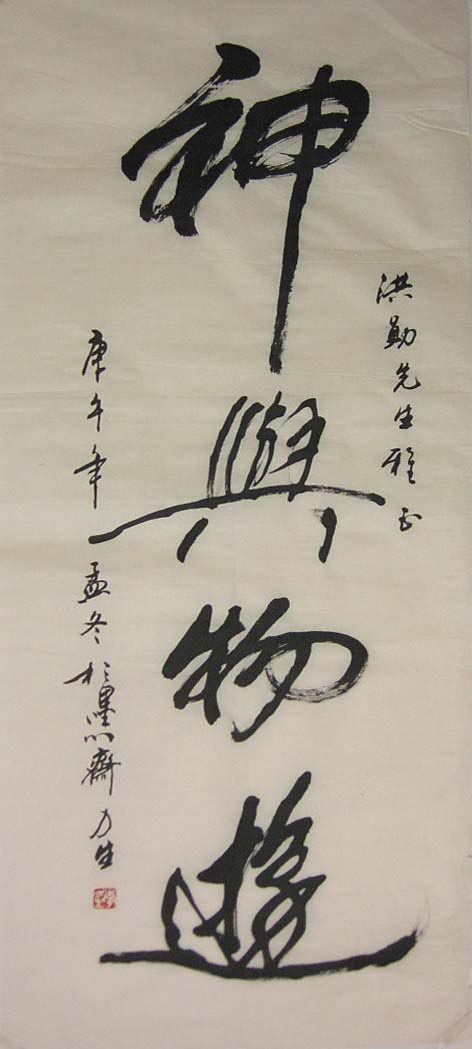 洪勛先生雅正
神與物遊
庚午年孟冬於墨心齋 力生